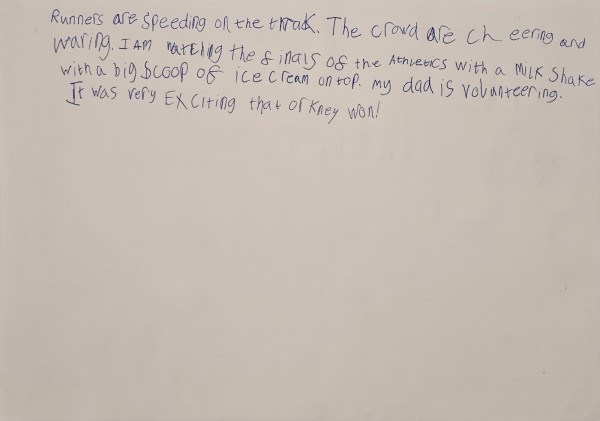 Runners are speeding on the trrak. The crowd are cheering and
waring. I AM watching the finals of the Athletics with a Milk Shake
with a big scoop of ice cream on top. my dad is volunteering.
It was very Exciting that orkney won!